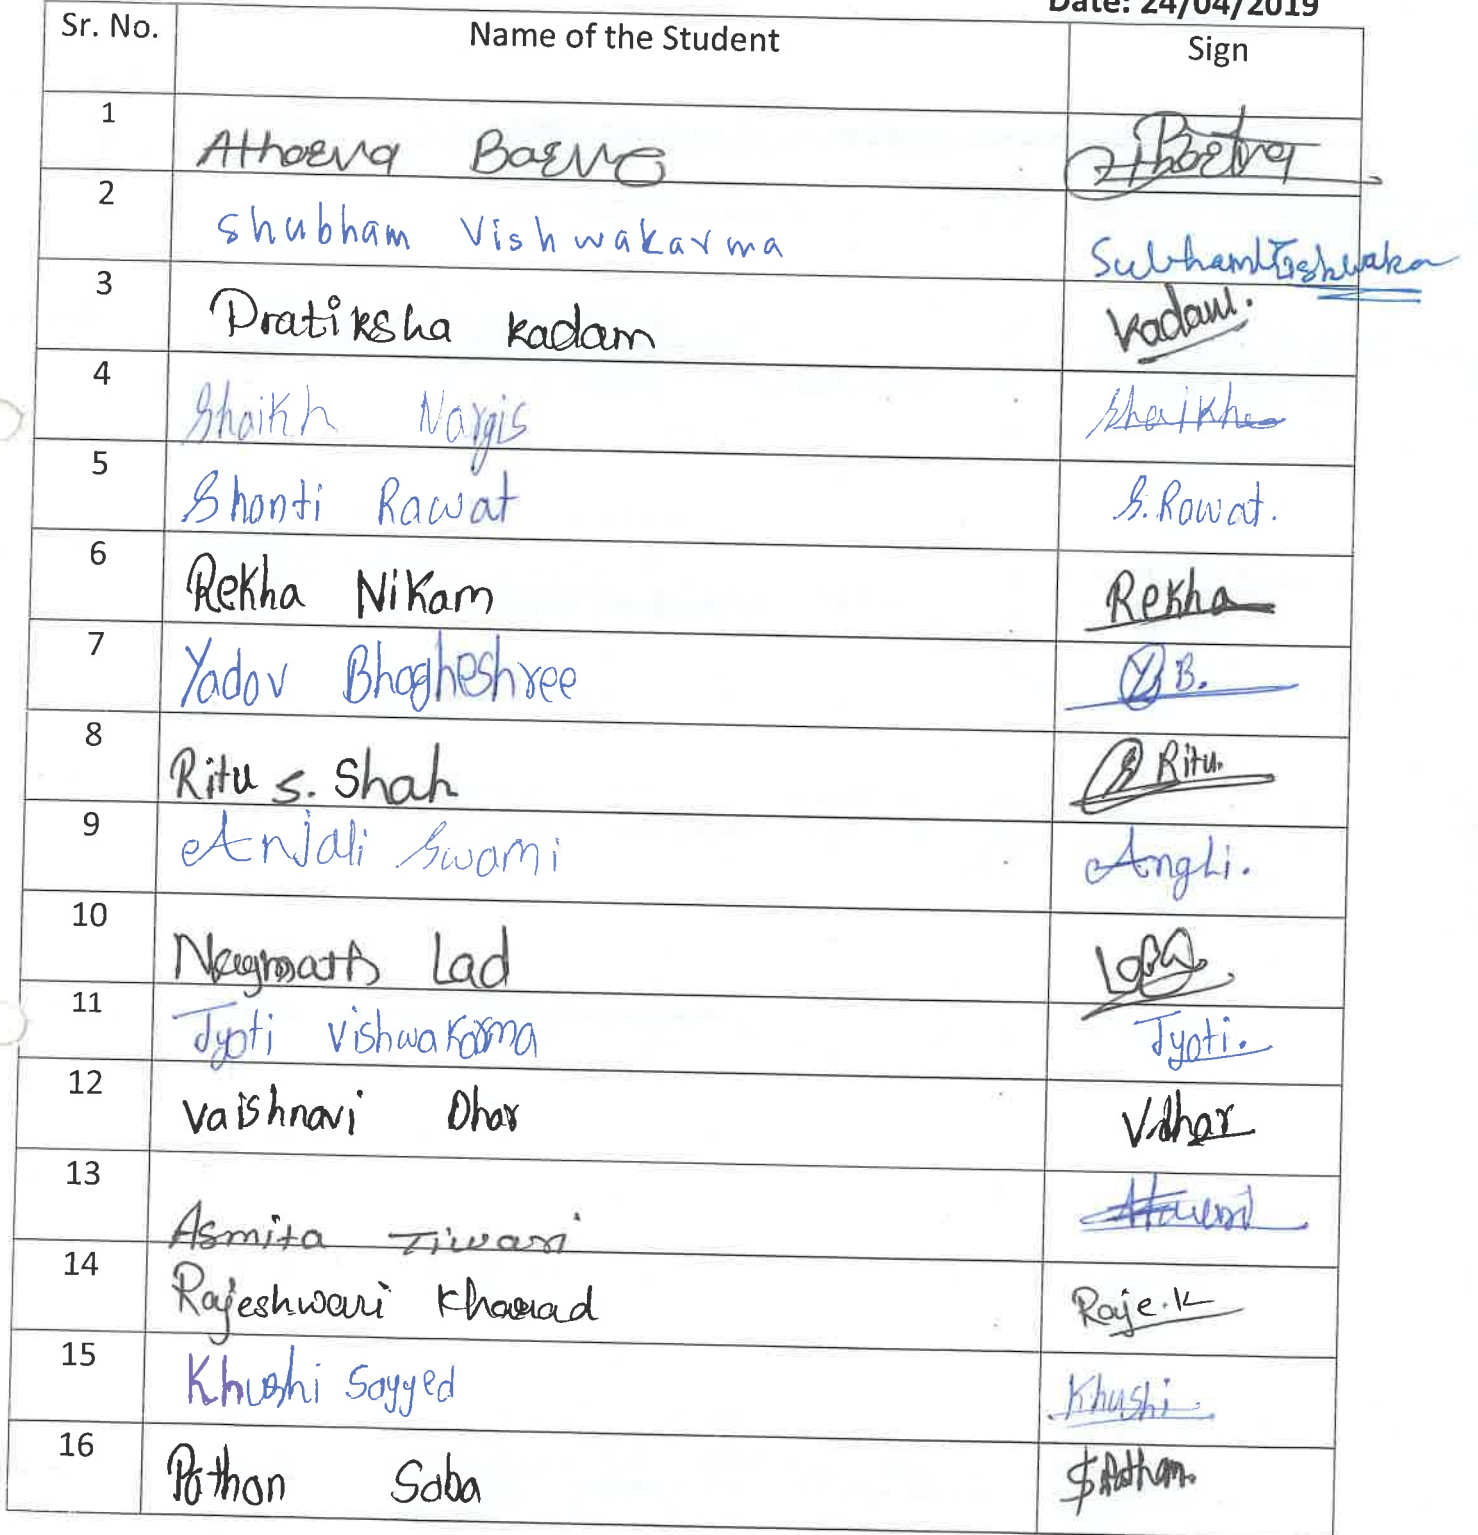 Date: 24/04/2019
Sr. No. Name of the Student Sign
1 Atharva Barve
2 Shubham Vishwakarma SubhamVishwaka
3 Pratiksha Kadam Kadam.
4 Shaikh Nargis Shaikh
5 Shanti Rawat S. Rawat.
6 Rekha Nikam Rekha
7 Yadav Bhagheshree Y B.
8 Ritu S. Shah Ritu.
9 Anjali Swami Angli.
10 Lad
11 Jyoti Vishwakarma Jyoti.
12 Vaishnavi Dhar V.dhar
13 Asmita Tiwari
14 Rajeshwari Kharad Raje.K
15 Khushi Sayyed Khushi.
16 Pathan Saba S Pathan.